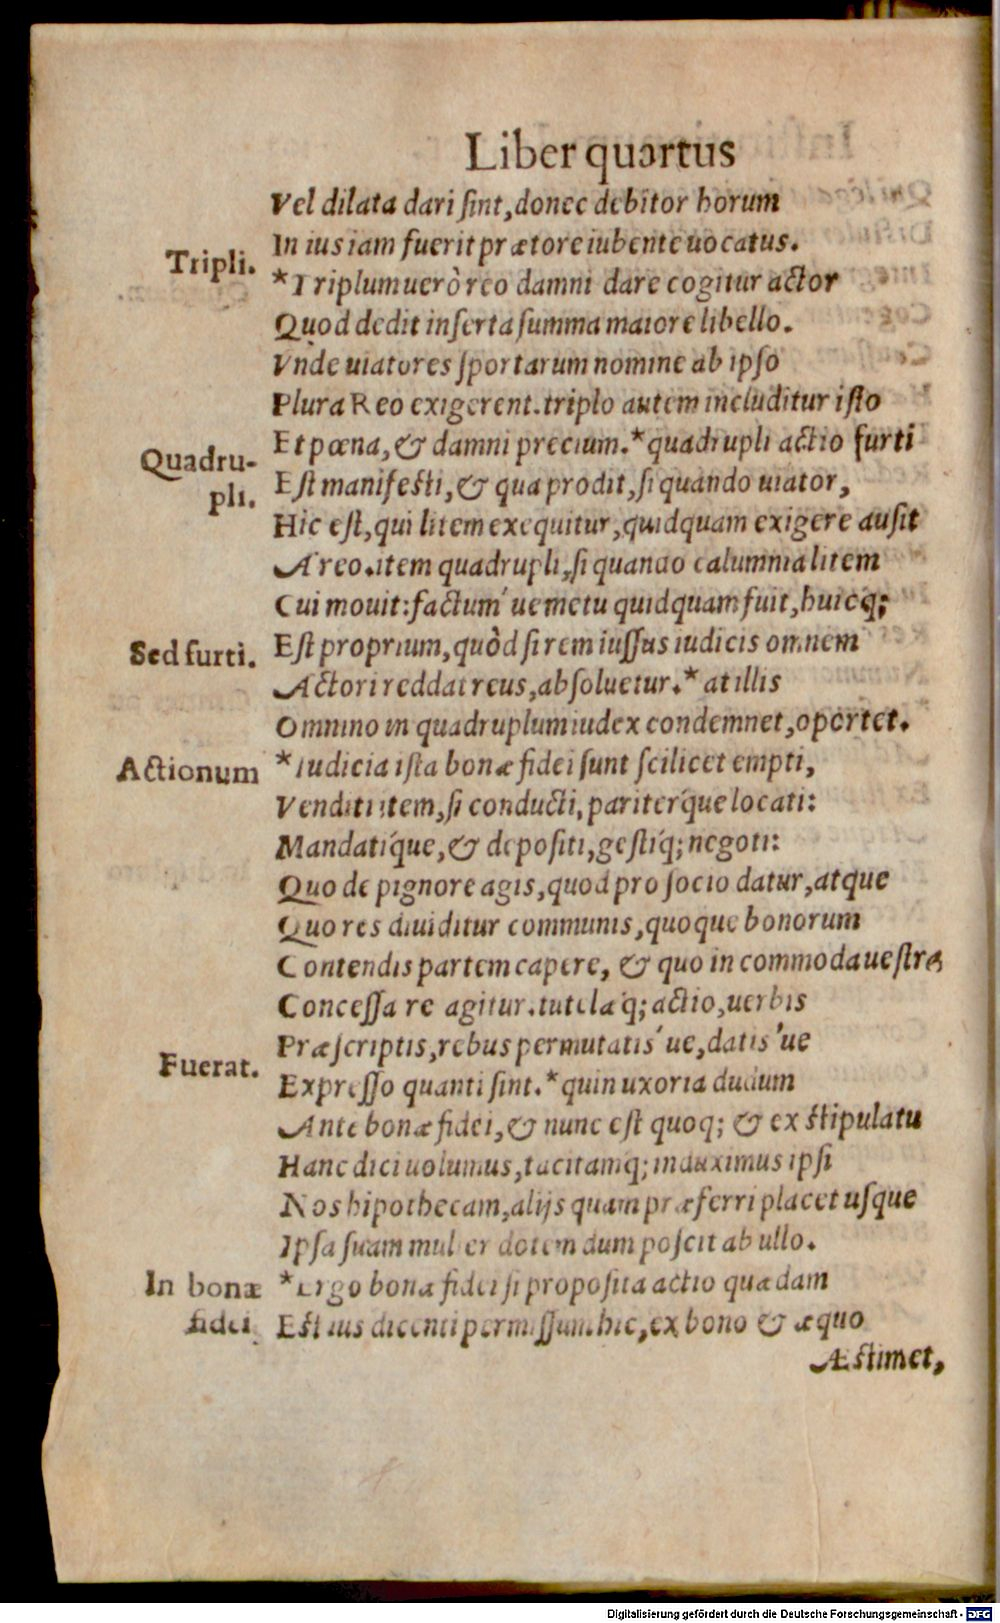 Liber quartus
Vel dilata dari sint, donec debitor horum
In ius iam fuerit prætore iubente uocatus.
Tripli.
*Triplum uerò reo damni dare cogitur actor
Quod dedit inserta summa maiore libello.
Vnde uiatores sportarum nomine ab ipso
Plura Reo exigerent. triplo autem includitur isto
Et pœna, & damni precium.* quadrupli actio furti
Quadru-
pli.
Est manifesti, & qua prodit, si quando uiator,
Hic est, qui litem exequitur, quidquam exigere ausit
A reo. item quadrupli, si quando calumnia litem
Cui mouit: factum' ue metu quidquam fuit, huicq;
Sed furti.
Est proprium, quòd si rem iussus iudicis omnem
Actori reddat reus, absoluetur.* at illis
Omnino in quadruplum iudex condemnet, oportet.
Actionum
*Iudicia ista bonæ fidei sunt scilicet empti,
Venditi item, si conducti, pariter'que locati:
Mandati'que, & depositi, gesti'q; negoti:
Quo de pignore agis, quod pro socio datur, atque
Quo res diuiditur communis, quoque bonorum
Contendis partem capere, & quo incommoda uestra
Concessa re agitur. tutela'q; actio, uerbis
Præscriptis, rebus permutatis' ue, datis 'ue
Fuerat.
Expresso quanti sint.* quin uxoria dudum
Ante bonæ fidei, & nunc est quoq; & ex stipulatu
Hanc dici uolumus, tacitamq; induximus ipsi
Nos hipothecam, alijs quam præferri placet usque
Ipsa suam mulier dotem dum poscit ab ullo.
In bonæ
fidei
*Ergo bonæ fidei si proposita actio quædam
Est ius dicenti permissum hic, ex bono & æquo
Æstimet,
Digitalisierung gefördert durch die Deutsche Forschungsgemeinschaft - DFG